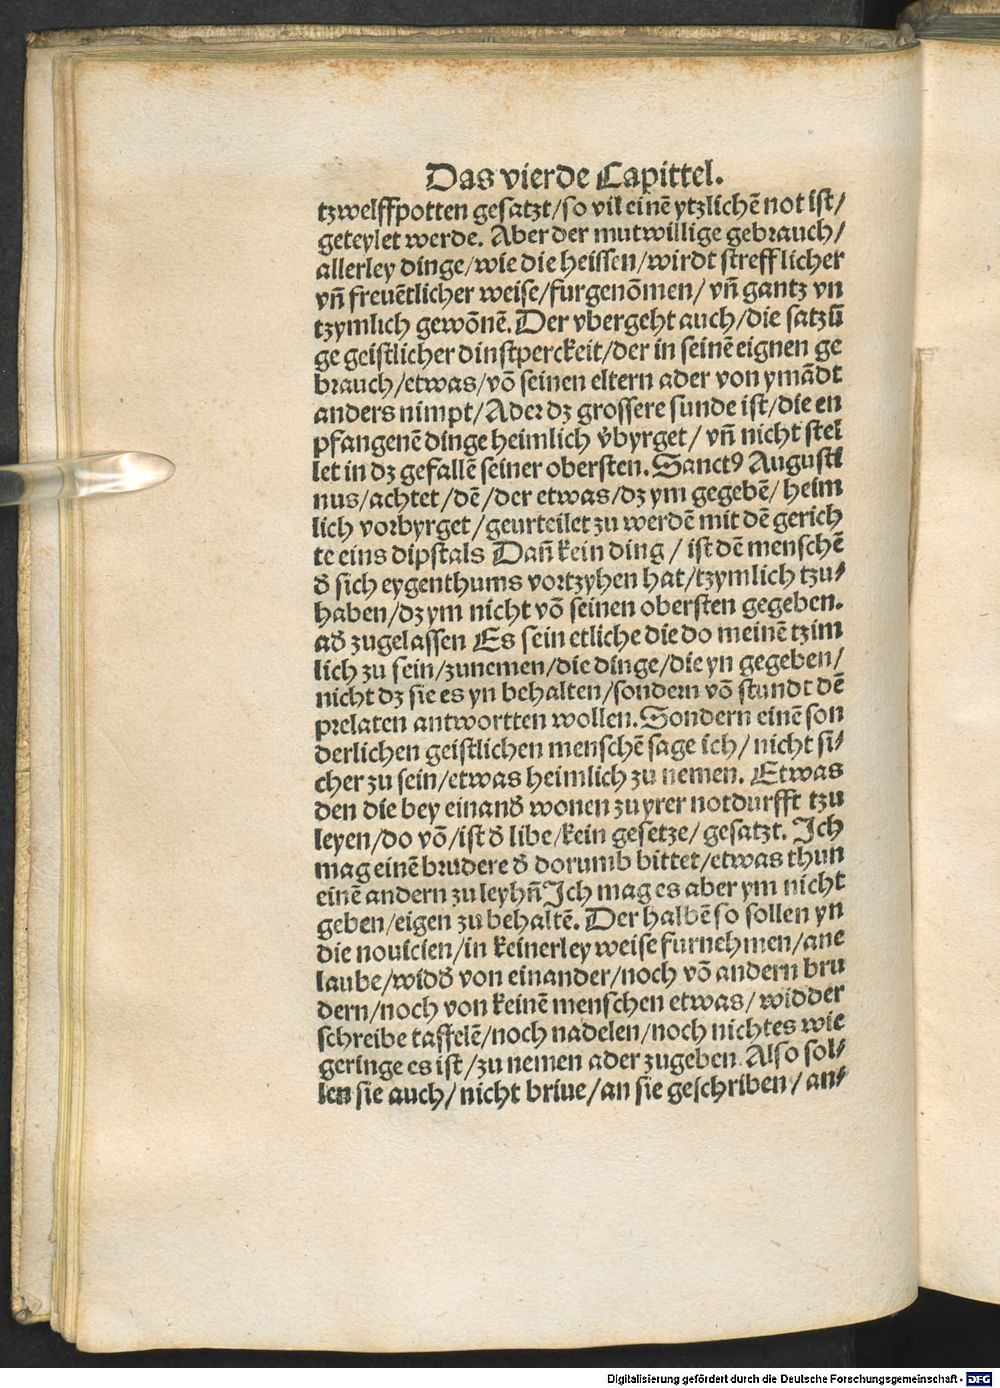 Das vierde Capittel.
tzwelffpotten gesatzt/so vil einē ytzlichē not ist/
geteylet werde. Aber der mutwillige gebrauch/
allerley dinge/wie die heissen/wirdt strefflicher
vn̄ freuētlicher weise/furgenōmen/ vn̄ gantz vn
tzymlich gewōnē. Der vbergeht auch/die satzū
ge geistlicher dinstperckeit/der in seinē eignen ge
brauch/etwas/vō seinen eltern ader von ymādt
anders nimpt/Ader dz grossere sunde ist/die en
pfangenē dinge heimlich v̊byrget/ vn̄ nicht stel
let in dz gefallē seiner obersten. Sanctꝰ Augusti
nus/achtet/dē/der etwas/dz ym gegebē/ heim
lich vorbyrget/geurteilet zu werdē mit dē gerich
te eins dipstals Dan̄ kein ding/ ist dē menschē
d̊ sich eygenthums vortzyhen hat/tzymlich tzu⸗
haben/dz ym nicht vō seinen obersten gegeben.
ad̊ zugelassen Es sein etliche die do meinē tzim
lich zu sein/zunemen/die dinge/die yn gegeben/
nicht dz sie es yn behalten/sondern vō stundt dē
prelaten antwortten wollen. Sondern einē son
derlichen geistlichen menschē sage ich/ nicht si⸗
cher zu sein/etwas heimlich zu nemen. Etwas
den die bey einand̊ wonen zu yrer notdurfft tzu
leyen/do vō/ist d̊ libe/kein gesetze/ gesatzt. Ich
mag einē brudere d̊ dorumb bittet/etwas thun
einē andern zu leyhn̄ Ich mag es aber ym nicht
geben/eigen zu behaltē. Der halbē so sollen yn
die nouicien/in keinerley weise furnehmen/ane
laube/wid̊ von einander/noch vō andern bru
dern/noch von keinē menschen etwas/ widder
schreibe taffelē/noch nadelen/noch nichtes wie
geringe es ist/zu nemen ader zugeben. Also sol⸗
len sie auch/ nicht briue/an sie geschriben/ an⸗
Digitalisierung gefördert durch die Deutsche Forschungsgemeinschaft - DFG